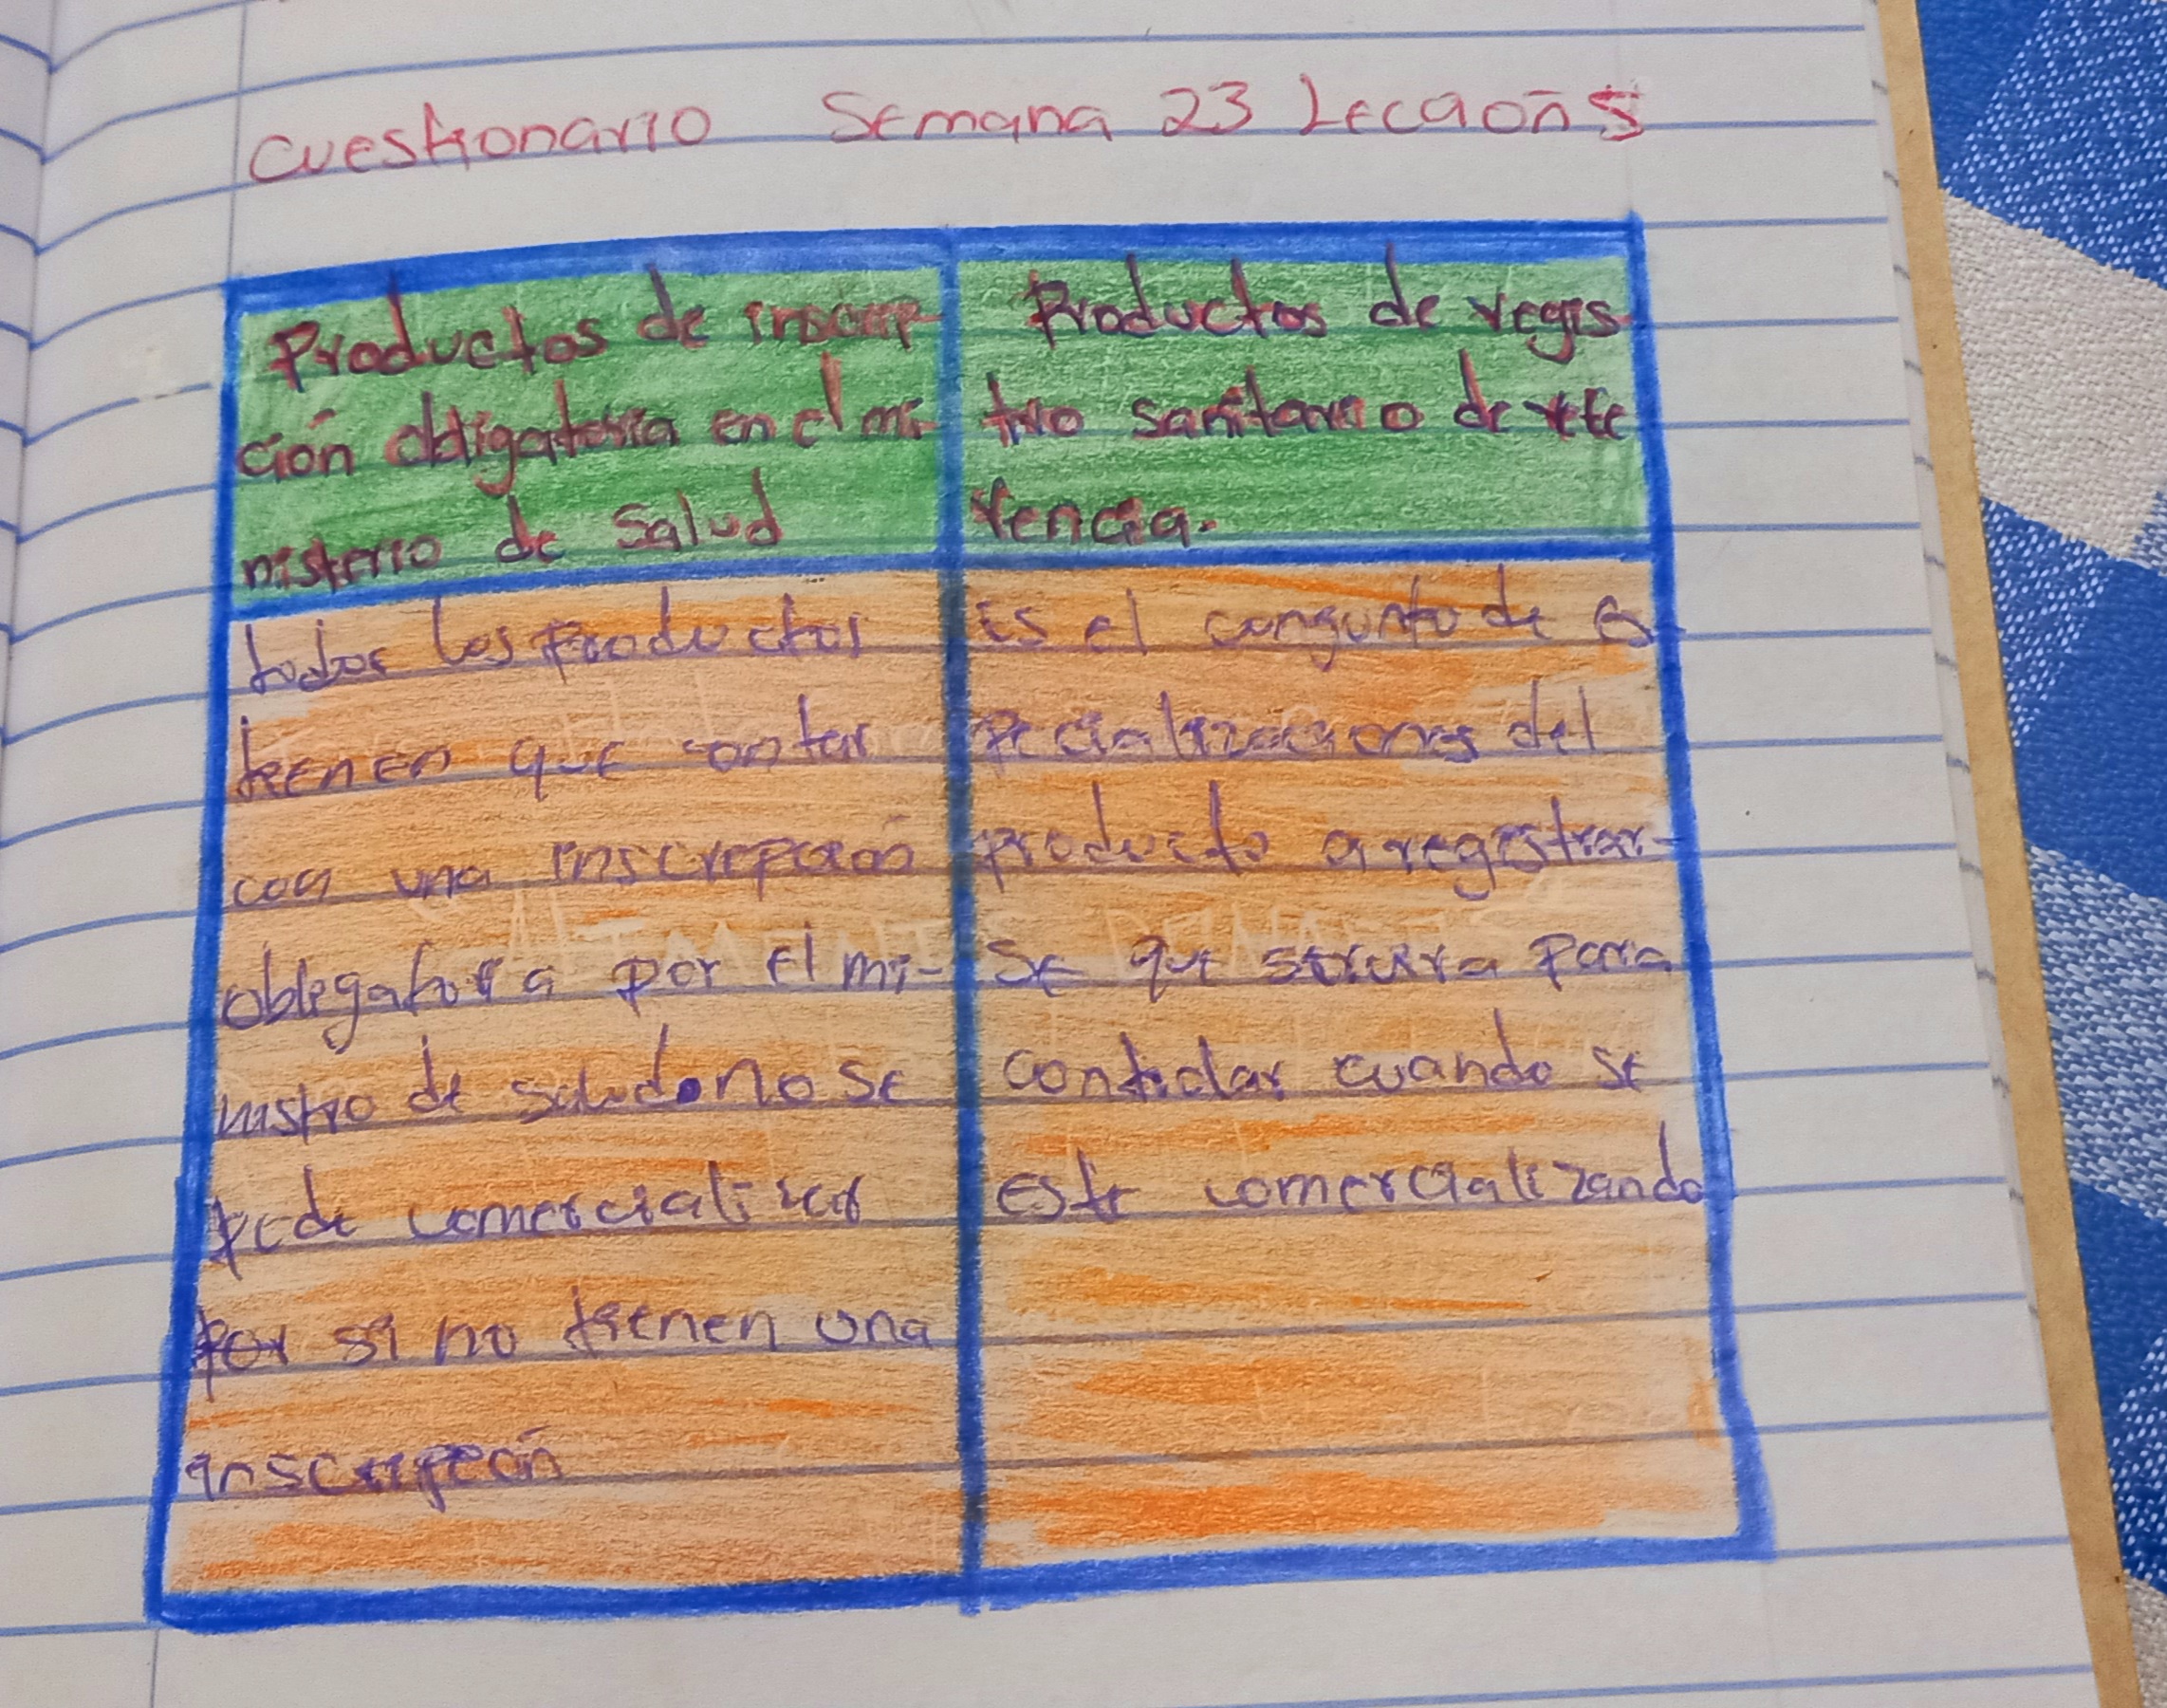 Cuestionario Semana 23 Lección 5
Productos de inscrip-
ción obligatoria en el mi-
nisterio de Salud
Productos de regis-
tro sanitario o de refe
rencia.
todos los productos
tienen que contar
con una inscrepción
obligatoria por el mi-
nistro de salud o no se
pede comercializar
por si no tienen una
inscripción
Es el congunto de es-
pecializaciones del
producto a registrar-
se que servira para
controlar cuando se
este comercializando